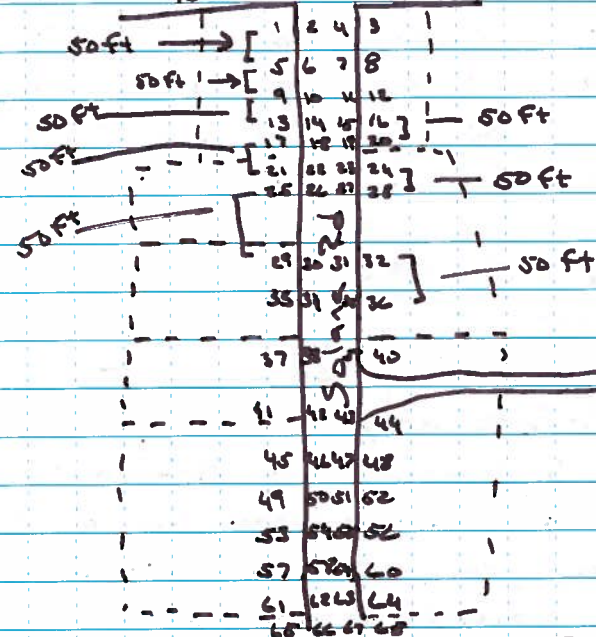 1 2 4 3
50 ft
5 6 7 8
50 ft
9 10 11 12
50 ft
13 14 15 16
50 ft
17 18 19 20
50 ft
21 22 23 24
50 ft
25 26 27 28
50 ft
29 30 31 32
50 ft
35 34 36
37 38 40
41 42 43 44
45 46 47 48
49 50 51 52
53 54 55 56
57 58 59 60
61 62 63 64
65 66 67 68